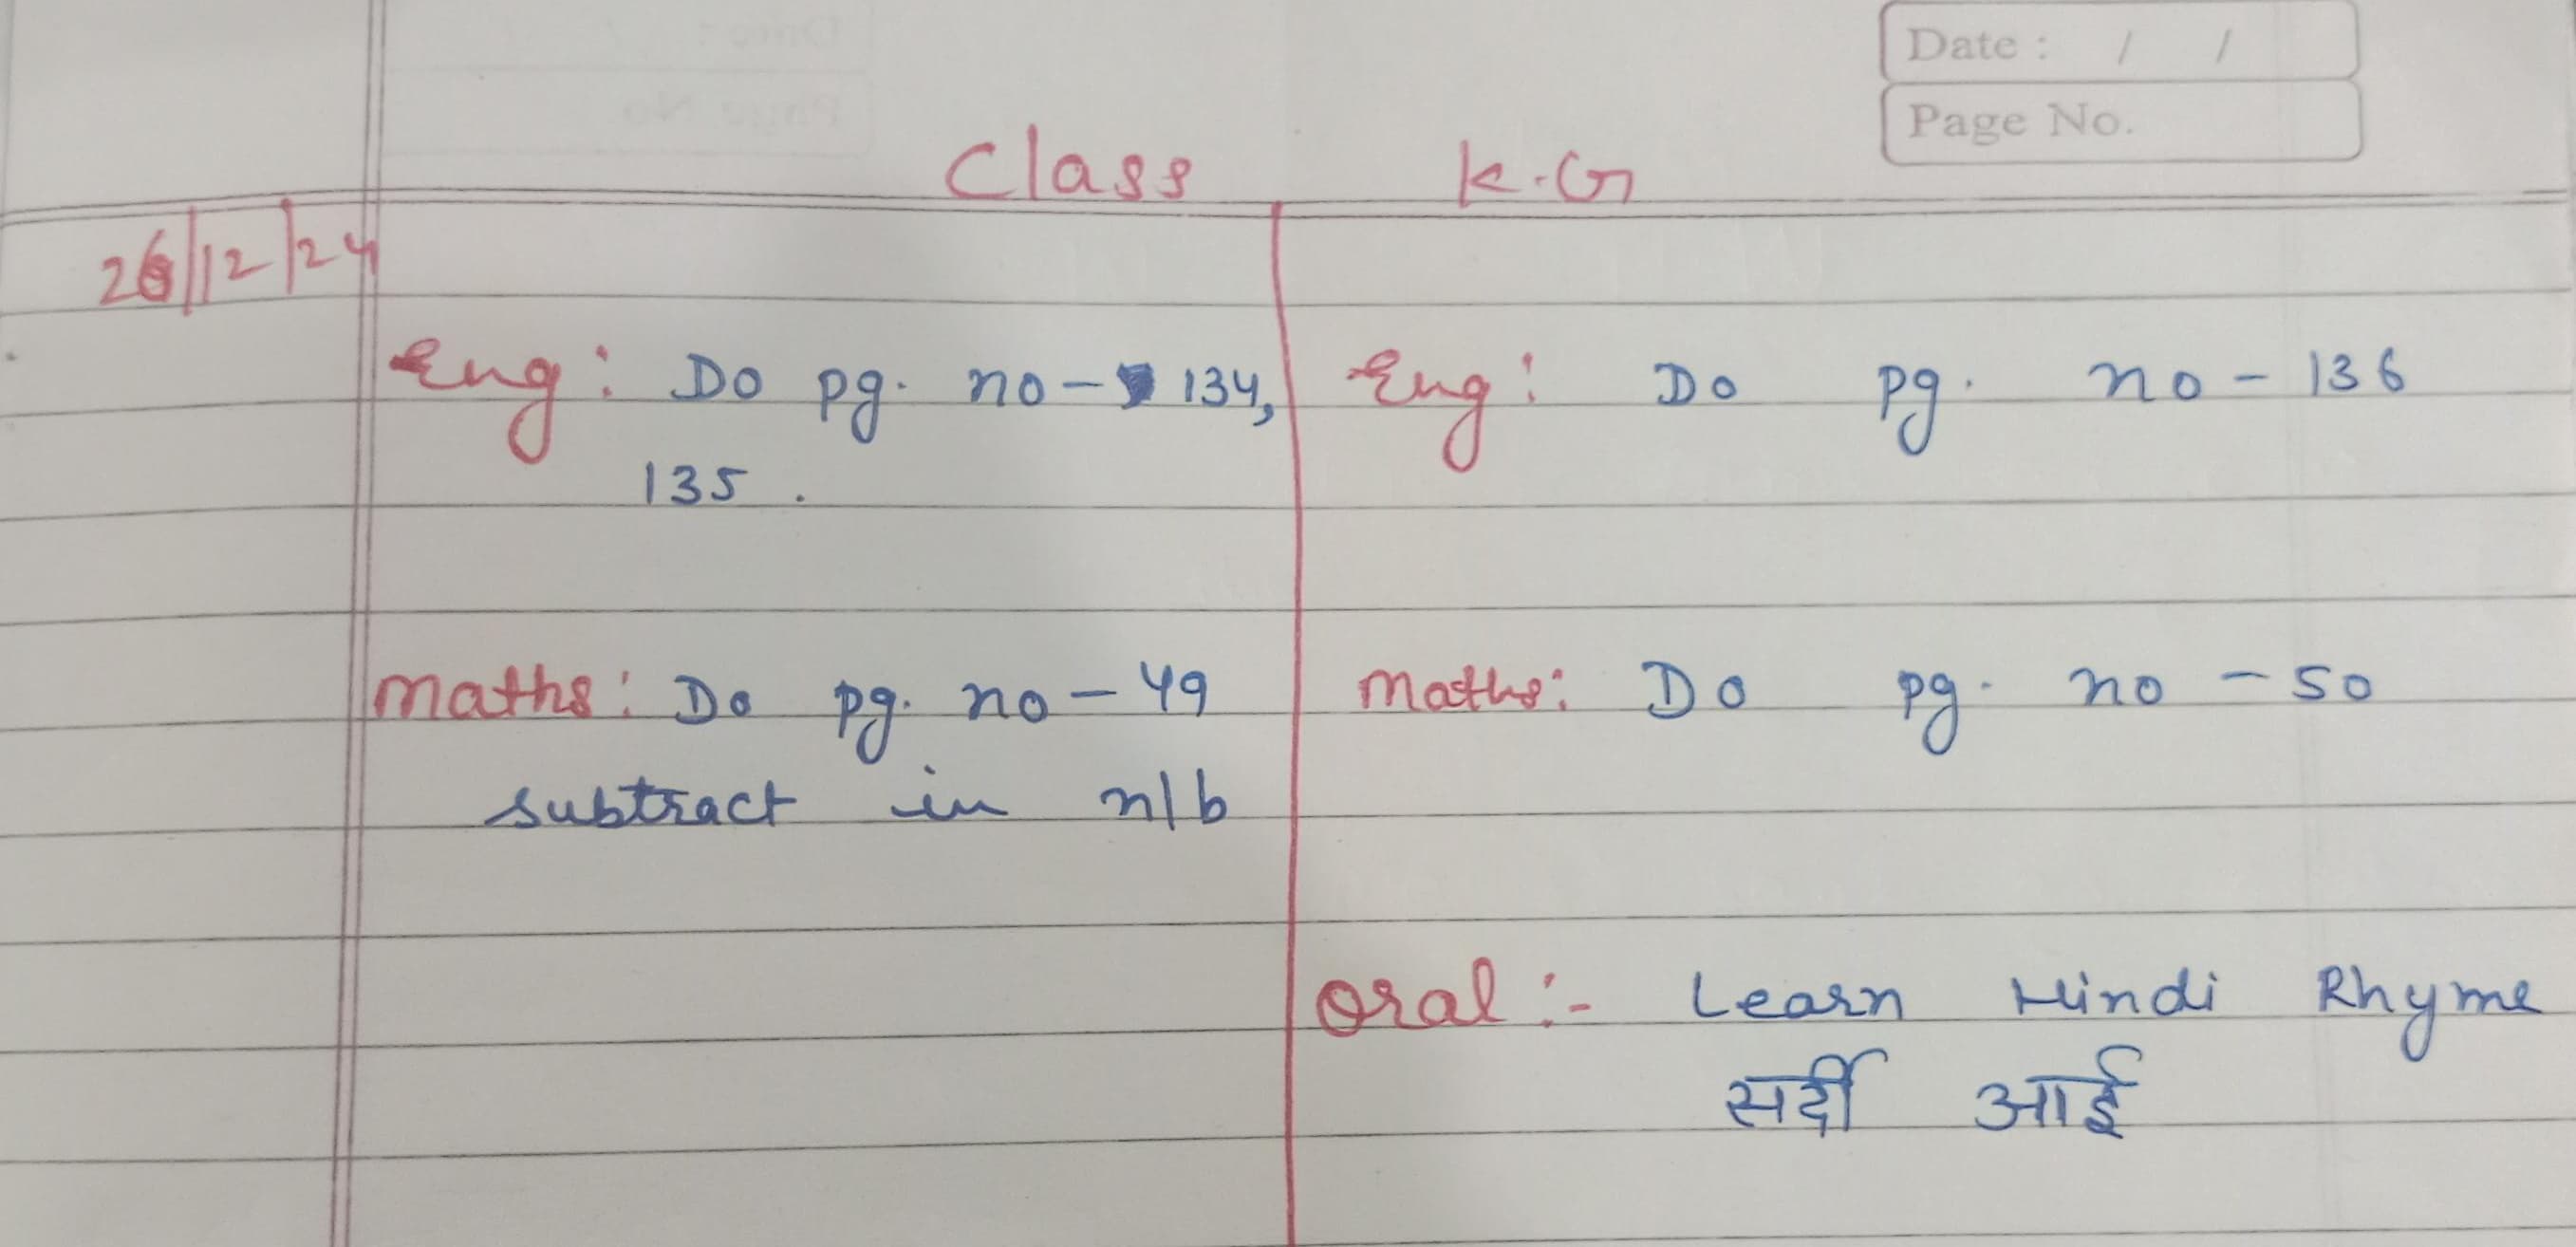 Date : / /
Page No.
Class K.G
26/12/24
Eng: Do pg. no - 134,
135.
Maths: Do pg. no - 49
subtract in n/b
Eng: Do pg. no - 136
Maths: Do pg. no - 50
Oral :- Learn Hindi Rhyme
सर्दी आई